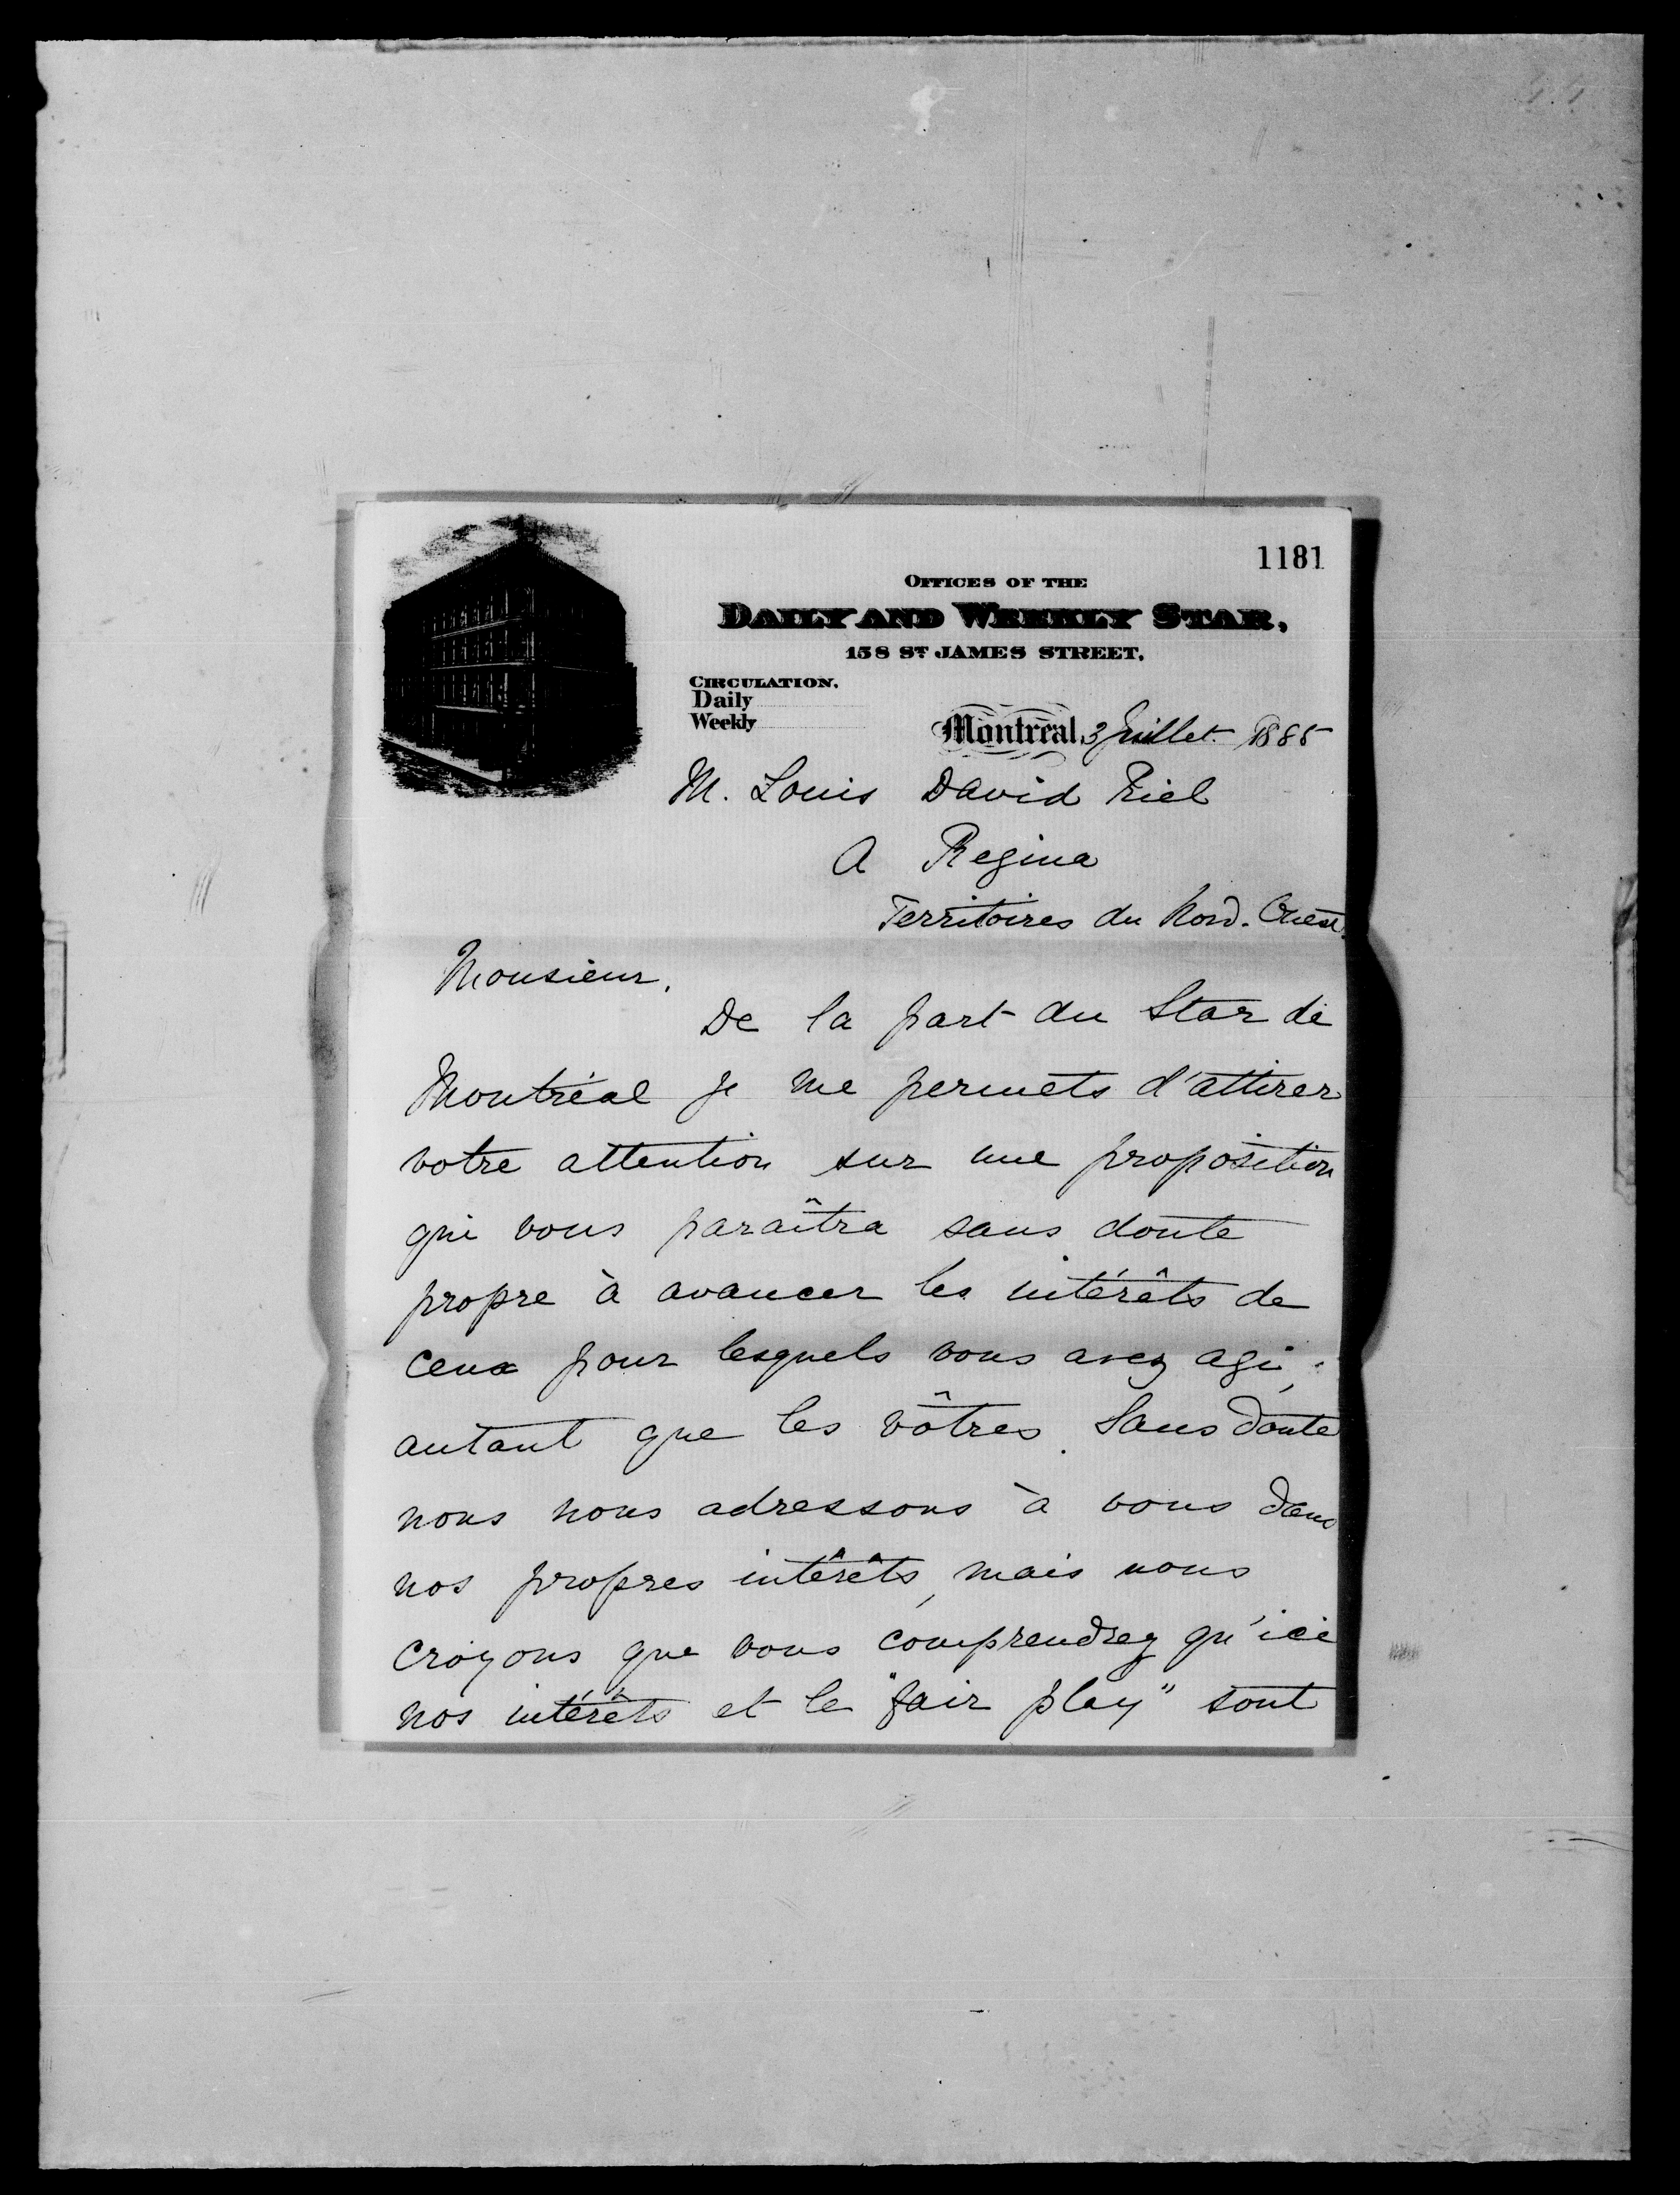 1181
OFFICES OF THE
DAILY AND WEEKLY STAR,
158 ST JAMES STREET,
CIRCULATION.
Daily
Weekly
Montreal, 3 Juillet 1885
M. Louis David Riel
A Regina
Territoires du Nord-Ouest.
Monsieur,
De la part du Star de
Montréal je me permets d'attirer
votre attention sur une proposition
qui vous paraîtra sans doute
propre à avancer les intérêts de
ceux pour lesquels vous avez agi,
autant que les vôtres. Sans doute
nous nous adressons à vous dans
nos propres intérêts, mais nous
croyons que vous comprendrez qu'ici
nos intérêts et le "fair play" sont